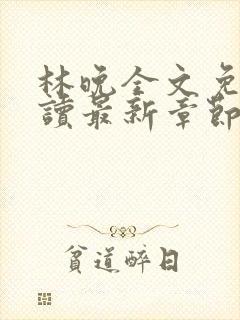 林晚全文免
讀最新章節
貧道醉日